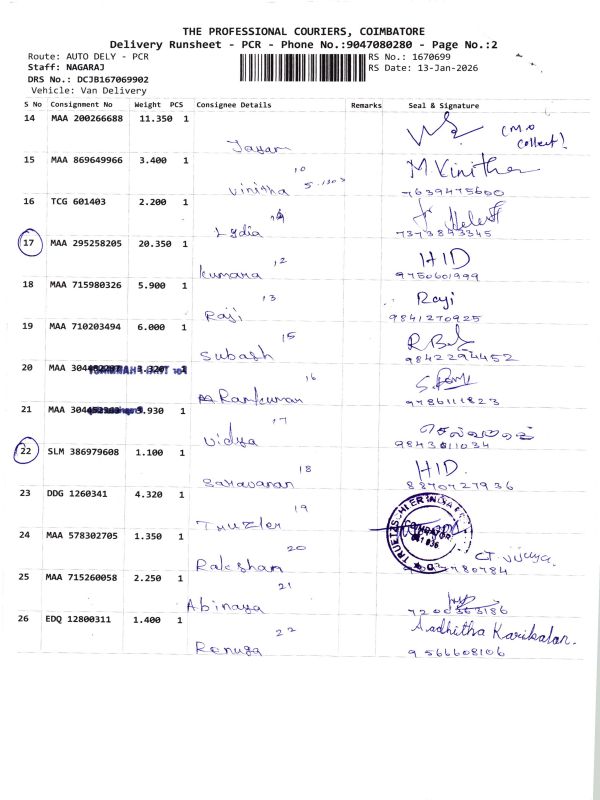 THE PROFESSIONAL COURIERS, COIMBATORE
Delivery Runsheet - PCR - Phone No.:9047080280 - Page No.:2
Route: AUTO DELY - PCR
RS No.: 1670699
Staff: NAGARAJ
RS Date: 13-Jan-2026
DRS No.: DCJB167069902
Vehicle: Van Delivery
S No Consignment No Weight PCS Consignee Details Remarks Seal & Signature
14 MAA 200266688 11.350 1
Collect!
Jayam
15 MAA 869649966 3.400 1 M. Vinitha
10
Vinitha 7639475600
16 TCG 601403 2.200 1
Lydia 7373893345
17 MAA 295258205 20.350 1 HID
12
Kumara 9750601999
18 MAA 715980326 5.900 1 Rayi
13
Raji 9841270925
19 MAA 710203494 6.000 1
15
Subash 9842294452
20 MAA 1
16
Ramkumar 9786111823
21 MAA .930 1
17
Vidya 9843011034
22 SLM 386979608 1.100 1 HID.
18
Saravanan 8870727936
23 DDG 1260341 4.320 1
19
Truzler
24 MAA 578302705 1.350 1
20 CT Vijaya.
Rakshan
25 MAA 715260058 2.250 1
21
Abinaya 7200363186
26 EDQ 12800311 1.400 1 Aadhitha Karikalan.
22
Renuga 9566608106